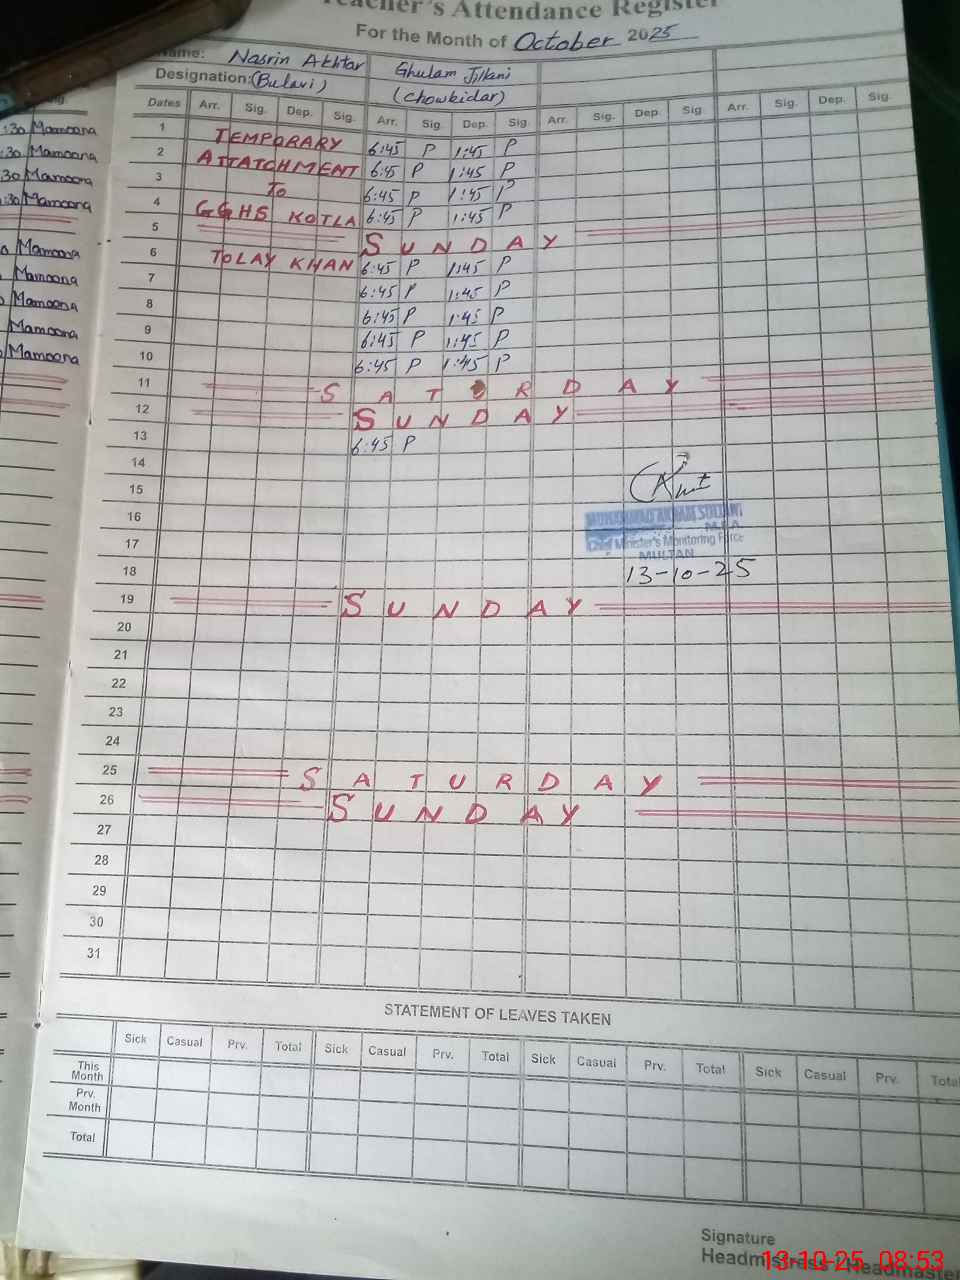 Teacher's Attendance Register
For the Month of October 2025
Name: Nasrin Akhtar Ghulam Jillani
Designation: (Bulavi) (Chowkidar)
Dates Arr. Sig. Dep. Sig. Arr. Sig. Dep. Sig. Arr. Sig. Dep. Sig. Arr. Sig. Dep. Sig.
1 TEMPORARY 6:45 P 1:45 P
2 ATTATCHMENT 6:45 P 1:45 P
3 To 6:45 P 1:45 P
4 GGHS KOTLA 6:45 P 1:45 P
5 SUNDAY
6 TOLAY KHAN 6:45 P 1:45 P
7 6:45 P 1:45 P
8 6:45 P 1:45 P
9 6:45 P 1:45 P
10 6:45 P 1:45 P
11 SATURDAY
12 SUNDAY
13 6:45 P
14
15
16
17
18
19 SUNDAY
20
21
22
23
24
25 SATURDAY
26 SUNDAY
27
28
29
30
31
MUHAMMAD AKRAM SULTANI
M.E.A.
Chief Minister's Monitoring Force
MULTAN
13-10-25
STATEMENT OF LEAVES TAKEN
Sick Casual Prv. Total Sick Casual Prv. Total Sick Casual Prv. Total Sick Casual Prv. Total
This Month
Prv. Month
Total
Signature
Headmistress / Headmaster
13-10-25 08:53
:30 Mamoona
:30 Mamoona
:30 Mamoona
:30 Mamoona
Mamoona
Mamoona
Mamoona
Mamoona
Mamoona